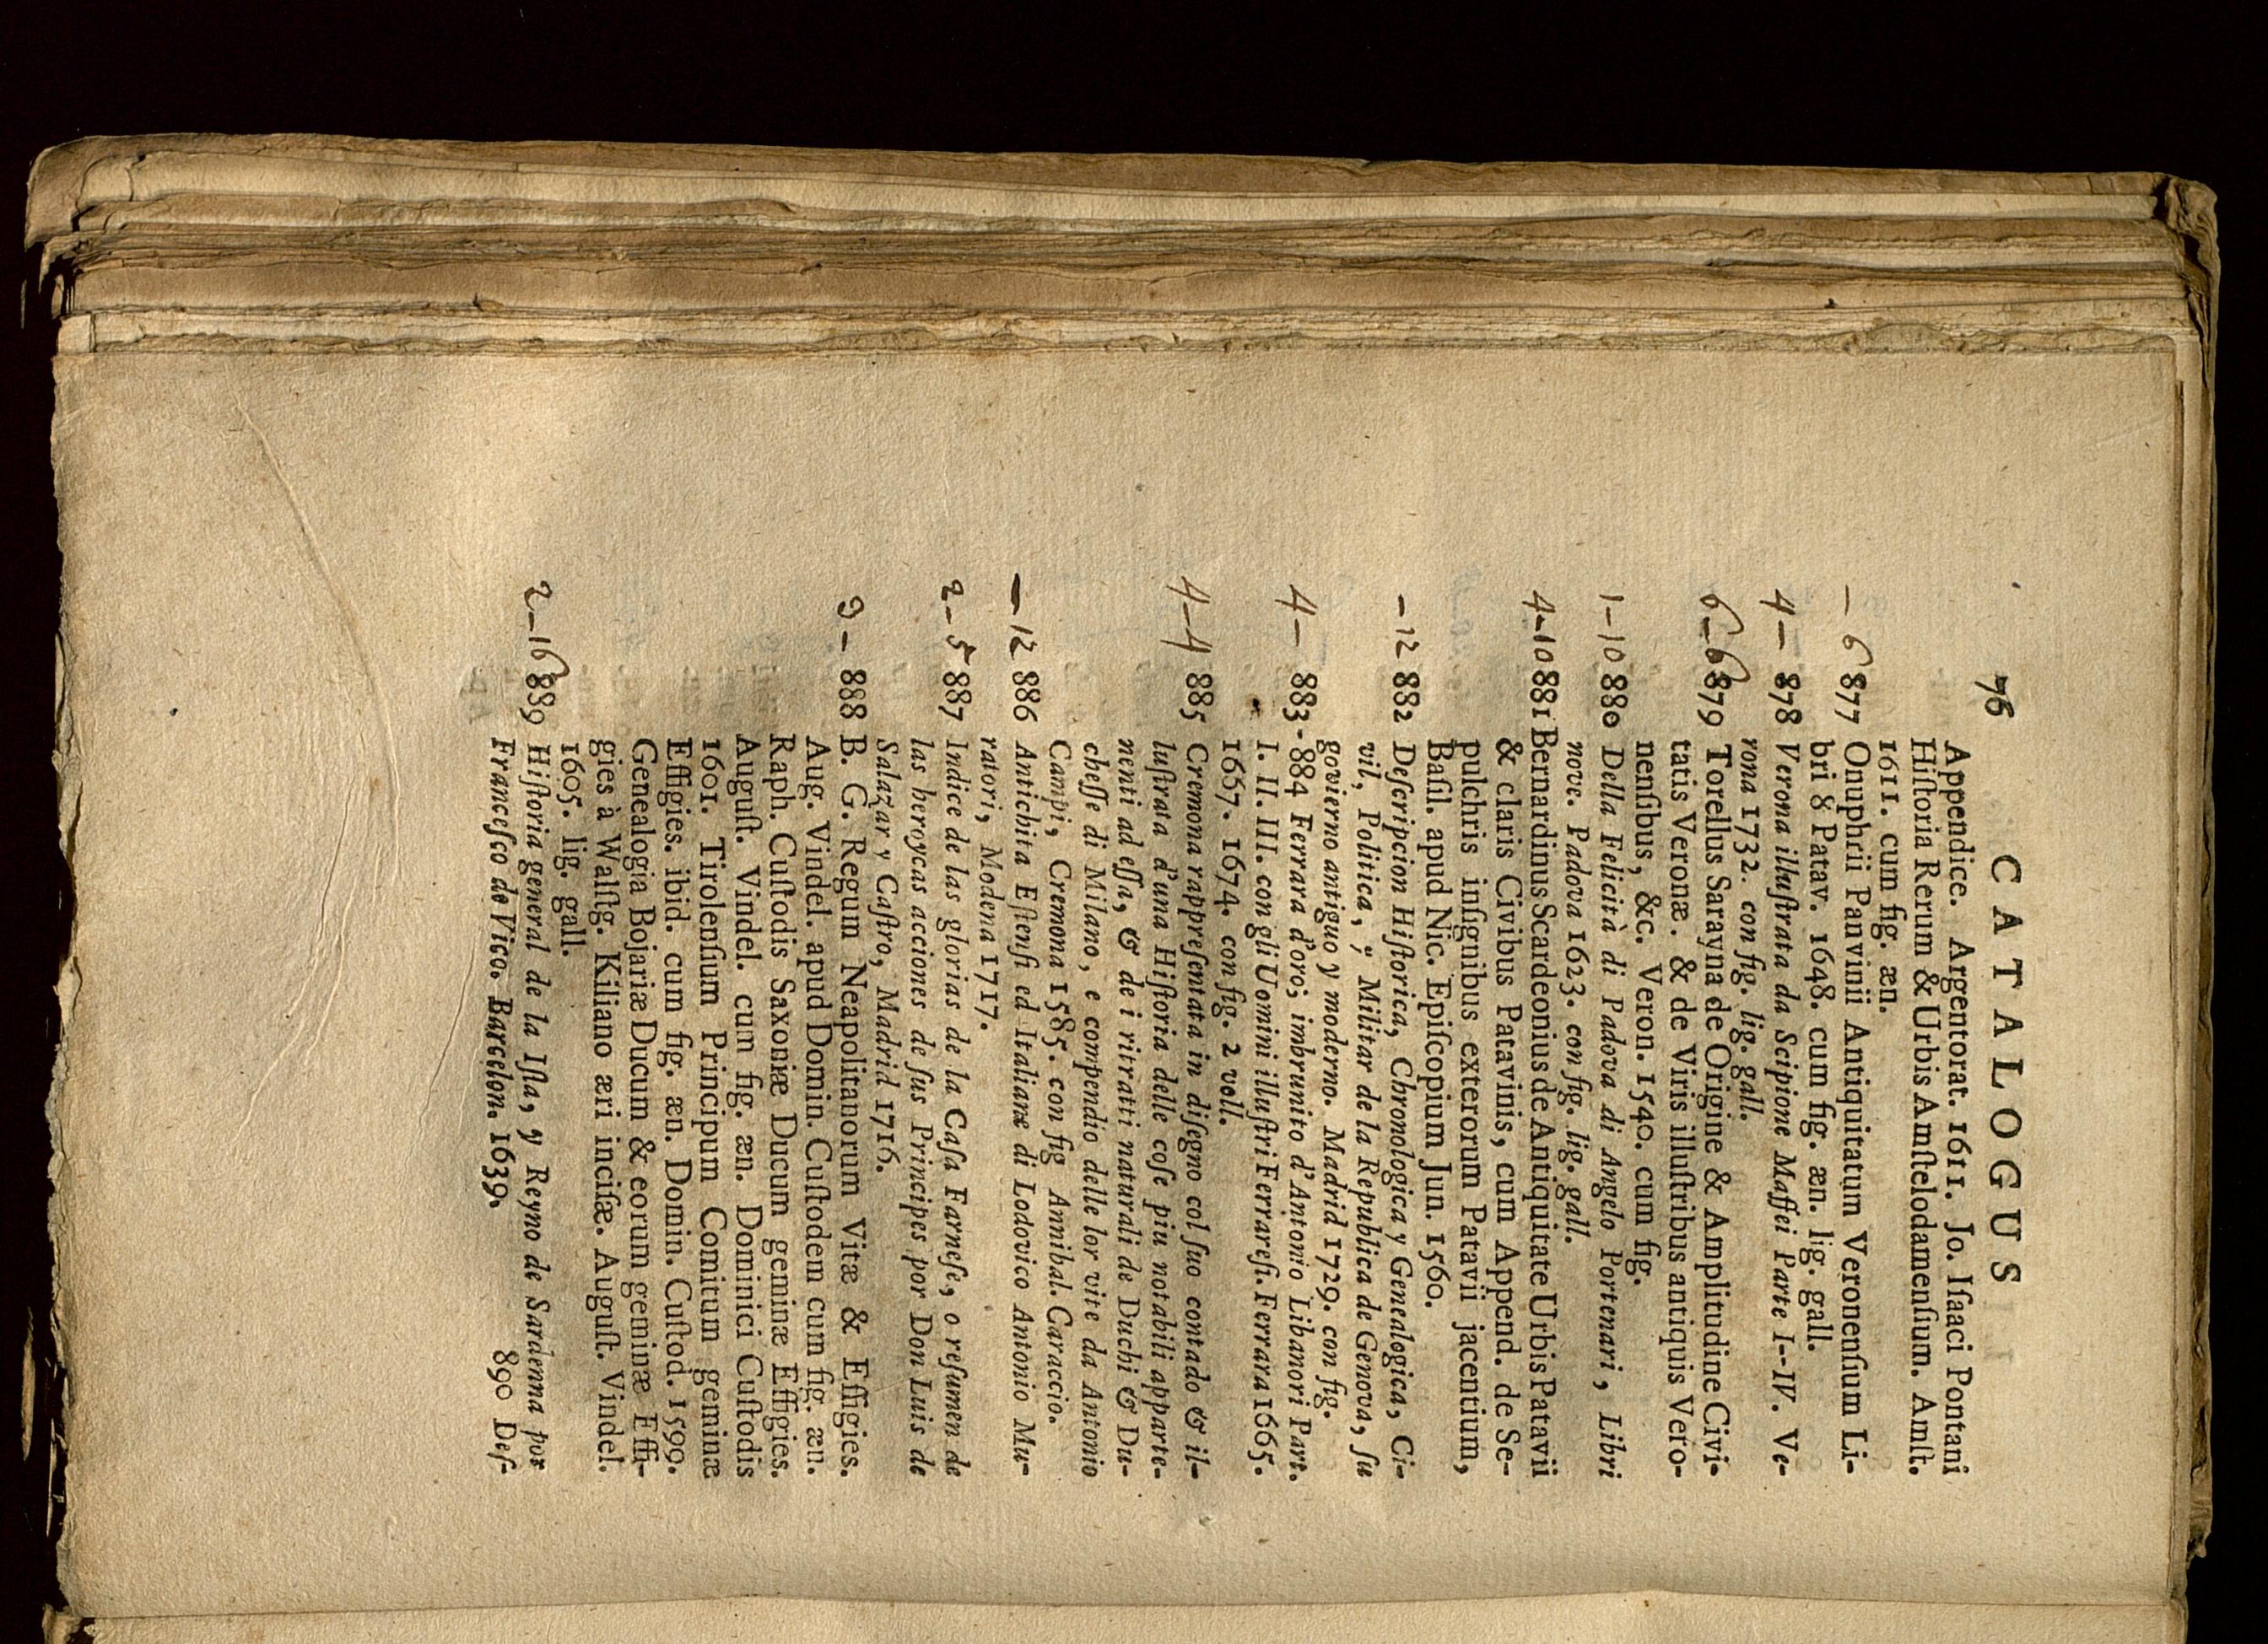 76 CATALOGUS
Appendice. Argentorat. 1611. Jo. Iſaaci Pontani
Hiſtoria Rerum & Urbis Amſtelodamenſium. Amſt.
1611. cum fig. æn.
— 6 877 Onuphrii Panvinii Antiquitatum Veronenſium Li-
bri 8 Patav. 1648. cum fig. æn. lig. gall.
4 — 878 Verona illuſtrata da Scipione Maffei Parte I--IV. Ve-
rona 1732. con fig. lig. gall.
6 — 6 879 Torellus Sarayna de Origine & Amplitudine Civi-
tatis Veronæ. & de Viris illuſtribus antiquis Vero-
nenſibus, &c. Veron. 1540. cum fig.
1 — 10 880 Della Felicità di Padova di Angelo Portenari, Libri
nove. Padova 1623. con fig. lig. gall.
4 - 10 881 Bernardinus Scardeonius de Antiquitate Urbis Patavii
& claris Civibus Patavinis, cum Append. de Se-
pulchris inſignibus exterorum Patavii jacentium,
Baſil. apud Nic. Epiſcopium Jun. 1560.
— 12 882 Deſcripcion Hiſtorica, Chronologica y Genealogica, Ci-
vil, Politica, y Militar de la Republica de Genova, ſu
govierno antiguo y moderno. Madrid 1729. con fig.
4 — 883-884 Ferrara d'oro; imbrunito d'Antonio Libanori Part.
I. II. III. con gli Uomini illuſtri Ferrareſi. Ferrara 1665.
1667. 1674. con fig. 2 voll.
4 — 4 885 Cremona rappreſentata in diſegno col ſuo contado & il-
luſtrata d'una Hiſtoria delle coſe piu notabili apparte-
nenti ad eſſa, & de i ritratti naturali de Duchi & Du-
cheſſe di Milano, e compendio delle lor vite da Antonio
Campi, Cremona 1585. con fig Annibal. Caraccio.
— 12 886 Antichita Eſtenſi ed Italianæ di Lodovico Antonio Mu-
ratori, Modena 1717.
2 — 5 887 Indice de las glorias de la Caſa Farneſe, o reſumen de
las heroycas acciones de ſus Principes por Don Luis de
Salazar y Caſtro, Madrid 1716.
9 — 888 B. G. Regum Neapolitanorum Vitæ & Effigies.
Aug. Vindel. apud Domin. Cuſtodem cum fig. æn.
Raph. Cuſtodis Saxoniæ Ducum geminæ Effigies.
Auguſt. Vindel. cum fig. æn. Dominici Cuſtodis
1601. Tirolenſium Principum Comitum geminæ
Effigies. ibid. cum fig. æn. Domin. Cuſtod. 1599.
Genealogia Bojariæ Ducum & eorum geminæ Effi-
gies à Walſtg. Kiliano æri inciſæ. Auguſt. Vindel.
1605. lig. gall.
2 — 16 889 Hiſtoria general de la Iſla, y Reyno de Sardenna por
Franceſco de Vico. Barcelon. 1639.
890 Deſ-